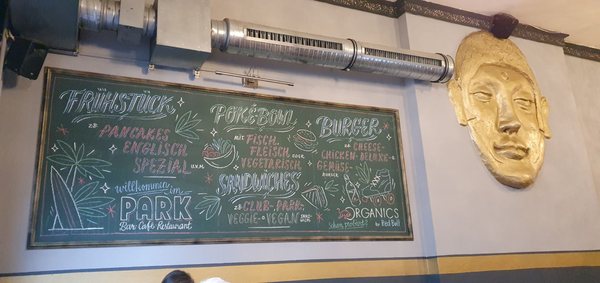 FRÜHSTÜCK
z.B. PANCAKES
ENGLISCH
SPEZIAL
u.v.m.
willkommen im
PARK
Bar Café Restaurant
POKÉBOWL
mit FISCH,
FLEISCH oder
VEGETARISCH
SANDWICHES
z.B. CLUB-, PARK-,
VEGGIE- o. VEGAN
BURGER
z.B. CHEESE-
CHICKEN-DELUXE-
GEMÜSE-
BURGER
ORGANICS
Schon probiert?
by Red Bull